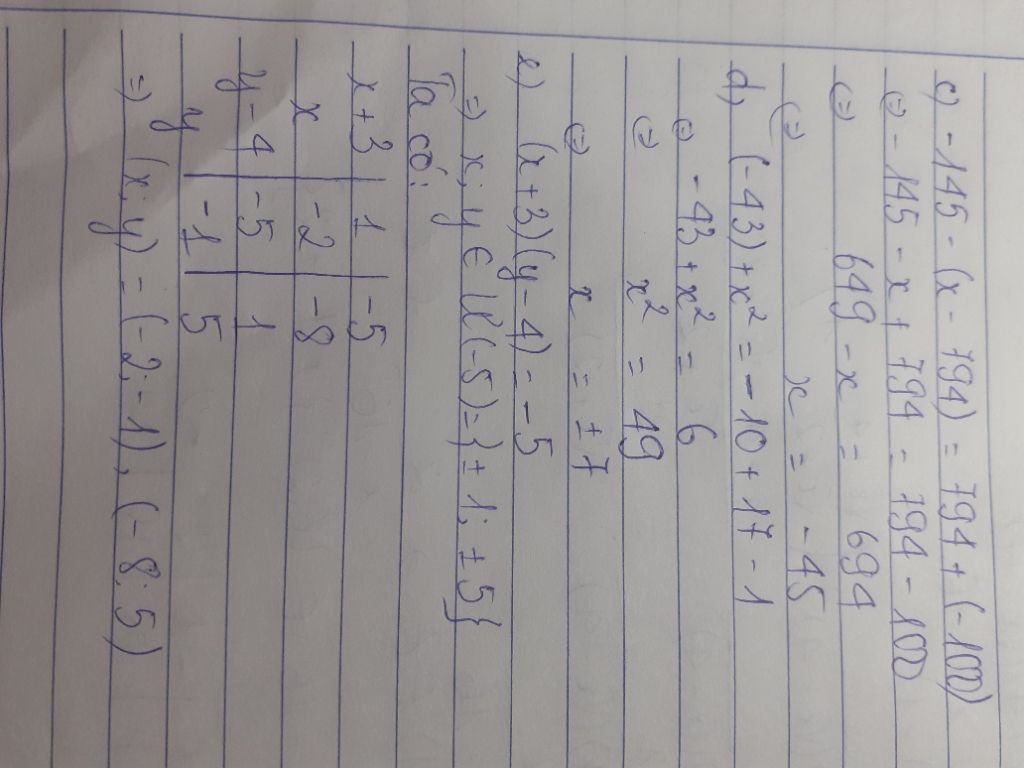 c) -145 - (x - 794) = 794 + (-100)
⇔ -145 - x + 794 = 794 - 100
⇔ 649 - x = 694
⇔ x = -45
d) (-43) + x² = -10 + 17 - 1
⇔ -43 + x² = 6
⇔ x² = 49
⇔ x = ±7
e) (x+3)(y-4) = -5
⇒ x; y ∈ Ư(-5) = {±1; ±5}
Ta có:
x+3 | 1 | -5
x | -2 | -8
y-4 | -5 | 1
y | -1 | 5
⇒ (x; y) = (-2; -1), (-8; 5)